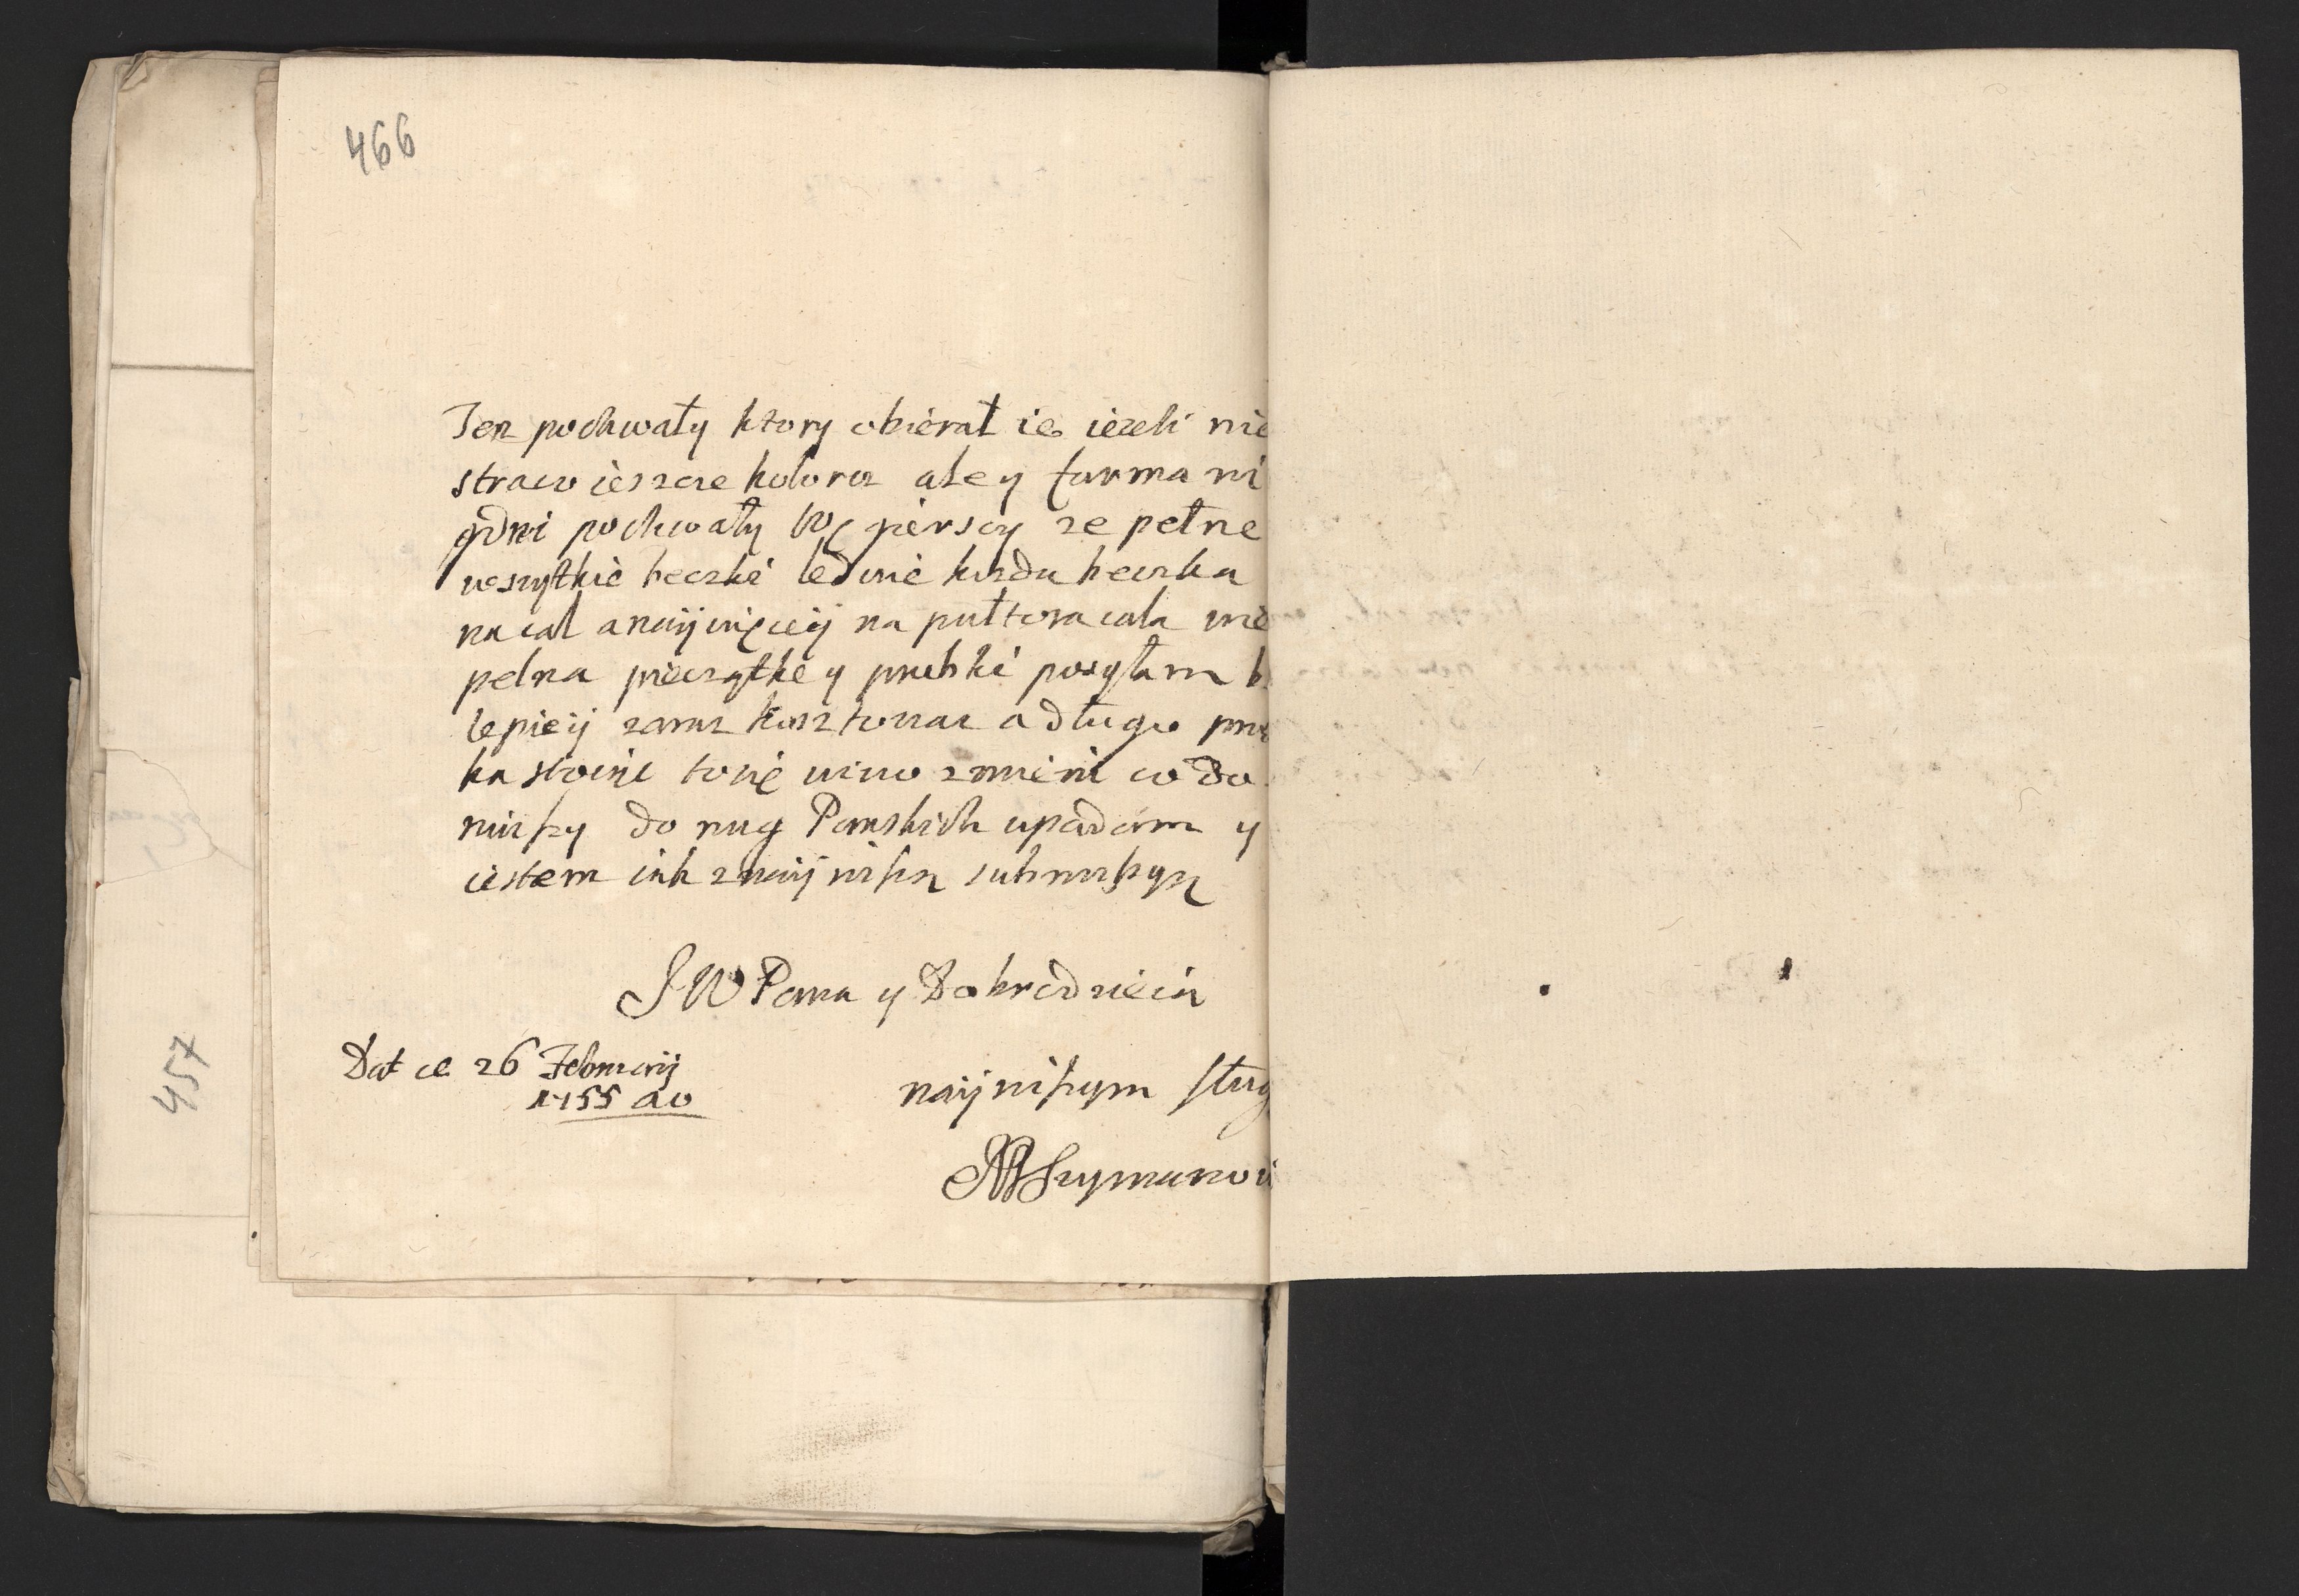 466
Ten pochwały ktory obierał ie ieżeli nie
straco ieszcze kolora ale y furmani
godni pochwały Węgierscy ze pełne
wszytkie beczki ledwie kożda beczka
na cal a naijwięceij na pułtora cala nie
pełna pieczątke y prubki posyłam
lepieij zaraz kosztowac a długo
ka stoinie to się wino zmieni co do
niższy do nug Panskich upadam y
iestem iak z naijniższą submissyą
J W Pana y Dobrodzieia
Dat ce 26 Februarij
1755 ao
naijniższym sług
Szymanowi
457